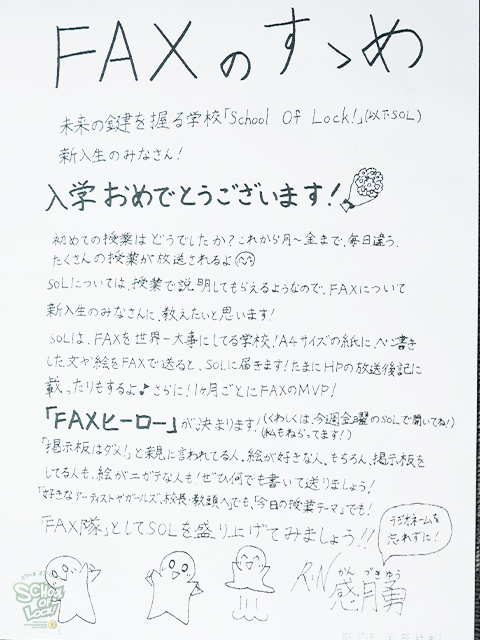 FAXのすゝめ
未来の鍵を握る学校「School Of Lock!」(以下SOL)
新入生のみなさん!
入学おめでとうございます!
初めての授業はどうでしたか?これから月~金まで、毎日違う、
たくさんの授業が放送されるよ
SOLについては、授業で説明してもらえるようなので、FAXについて
新入生のみなさんに、教えたいと思います!
SOLは、FAXを世界一大事にしてる学校!A4サイズの紙に、ペン書き
した文や絵をFAXで送ると、SOLに届きます!たまにHPの放送後記に
載ったりもするよ♪さらに!1ヶ月ごとにFAXのMVP!
「FAXヒーロー」が決まります!(くわしくは、今週金曜のSOLで聞いてね!)
(私もねらってます!)
「掲示板はダメ!」と親に言われてる人、絵が好きな人、もちろん、掲示板を
してる人も、絵がニガテな人も!ぜひ何でも書いて送りましょう!
「好きなアーティストやガールズ、校長・教頭へ」でも、「今日の授業テーマ」でも!
「FAX隊」としてSOLを盛り上げてみましょう!!
ラジオネームを
忘れずに!
R.N
がんづきゆう
感月勇
SCHOOL
OF
LOCK!